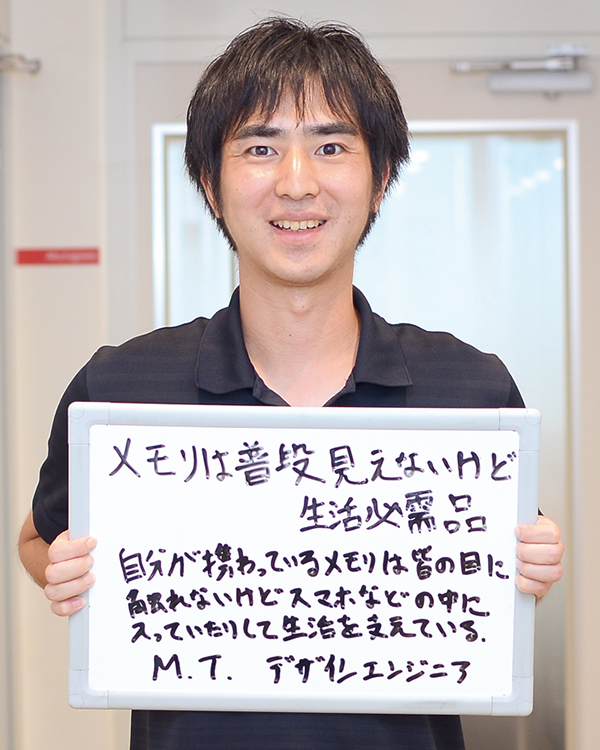 メモリは普段見えないけど
生活必需品
自分が携わっているメモリは皆の目に
触れないけどスマホなどの中に
入っていたりして生活を支えている.
M.T. デザインエンジニア